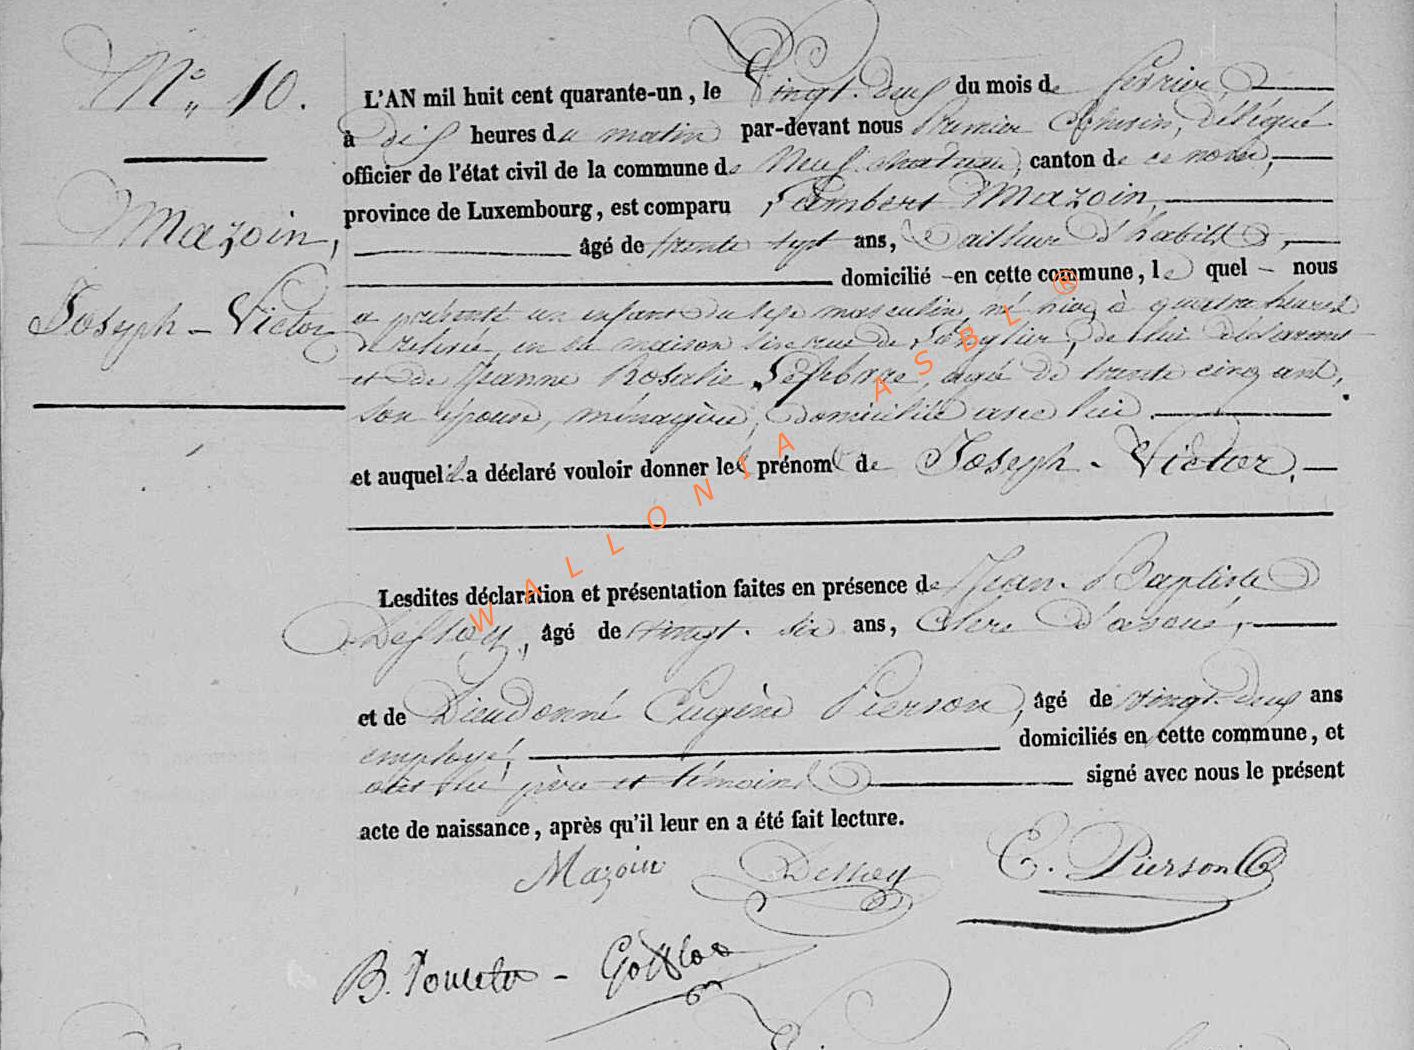 N° 10.
L'AN mil huit cent quarante-un, le Vingt-deux du mois de février
à dix heures du matin par-devant nous Premier Echevin, délégué
officier de l'état civil de la commune de Neufchateau, canton de ce nom,
province de Luxembourg, est comparu Lambert Mazoin,
Mazoin,
âgé de trente sept ans, Tailleur d'habits,
domicilié en cette commune, le quel nous
Joseph-Victor
a présenté un enfant du sexe masculin, né hier à quatre heures
de relevée, en sa maison sise rue de , de lui déclarant
et de Jeanne Rosalie Lefebvre, agée de trente cinq ans,
son épouse, ménagère, domiciliée avec lui
et auquel il a déclaré vouloir donner les prénoms de Joseph-Victor,
Lesdites déclaration et présentation faites en présence de Jean-Baptiste
Dessoy, âgé de vingt-six ans, Clerc d'avoué,
et de Dieudonné Eugène Pierson, âgé de vingt-deux ans
employé, domiciliés en cette commune, et
ont les père et témoins signé avec nous le présent
acte de naissance, après qu'il leur en a été fait lecture.
Mazoin Dessoy E. Pierson
B. Poncelet -
WALLONIA ASBL ®